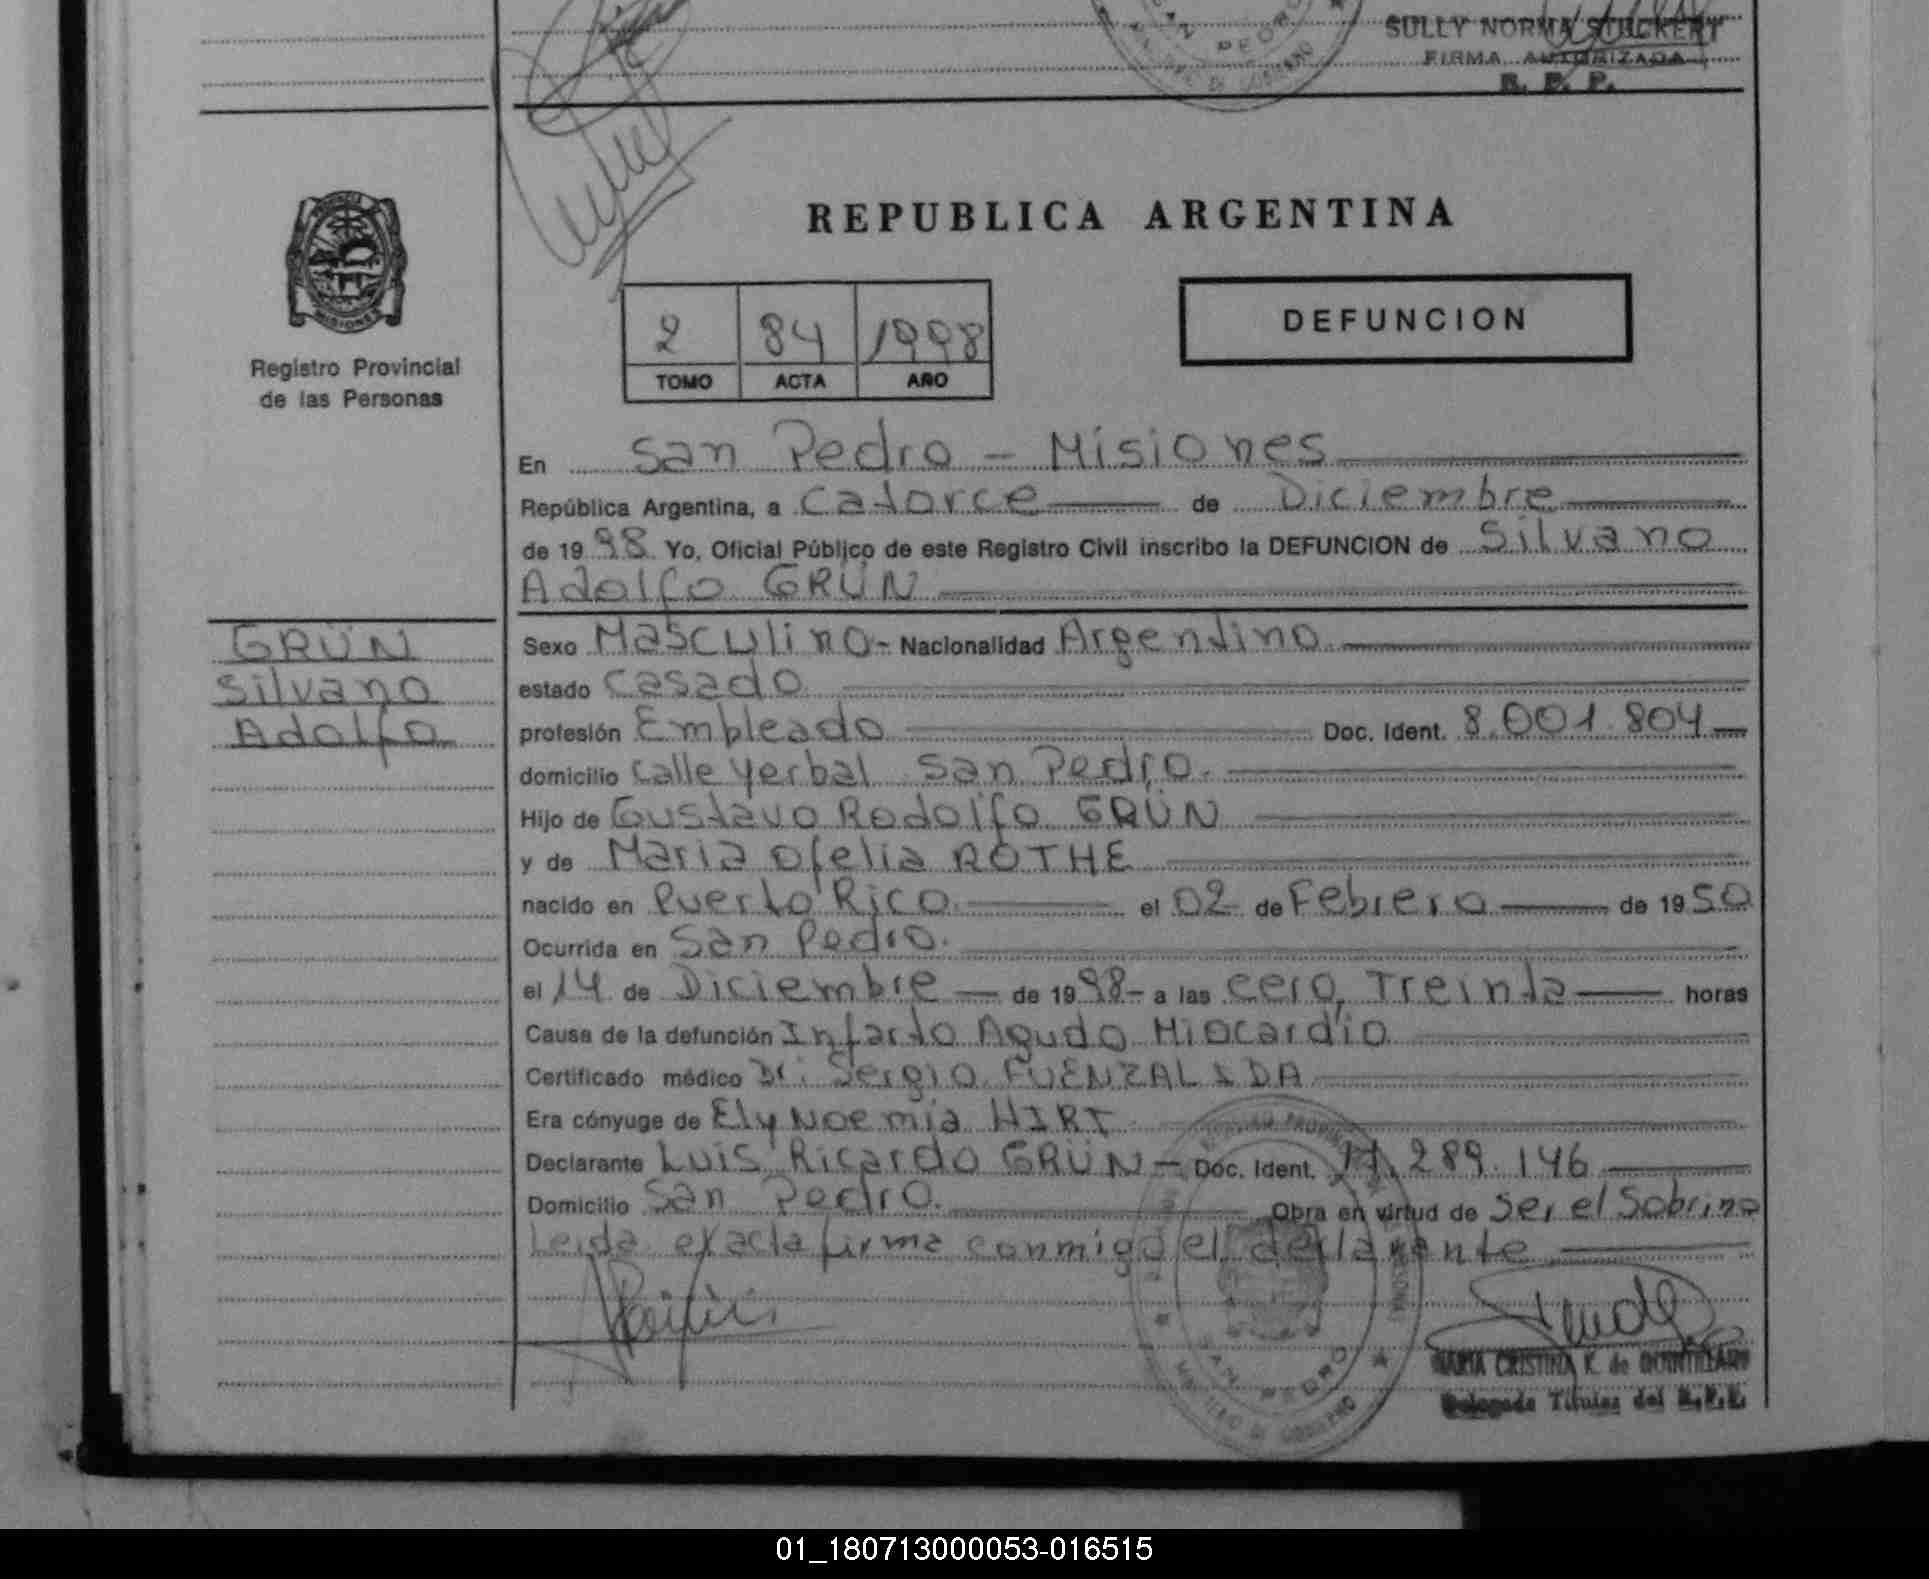 SULLY NORMA STUCKERT
FIRMA AUTORIZADA
R. P. P.
PEDRO
PROVINCIA
MISIONES
Registro Provincial
de las Personas
REPUBLICA ARGENTINA
2 84 1998
TOMO ACTA AÑO
DEFUNCION
En San Pedro - Misiones
República Argentina, a Catorce de Diciembre
de 1998 Yo, Oficial Público de este Registro Civil inscribo la DEFUNCION de Silvano
Adolfo GRÜN
GRÜN
Silvano
Adolfo
Sexo Masculino - Nacionalidad Argentino
estado Casado
profesión Empleado Doc. Ident. 8.001.804
domicilio Calle Yerbal San Pedro.
Hijo de Gustavo Rodolfo GRÜN
y de Maria Ofelia ROTHE
nacido en Puerto Rico el 02 de Febrero de 1950
Ocurrida en San Pedro.
el 14 de Diciembre de 1998 - a las cero, Treinta horas
Causa de la defunción Infarto Agudo Miocardio
Certificado médico Dr. Sergio FUENZALIDA
Era cónyuge de Ely Noemia HIRT
Declarante Luis Ricardo GRÜN - Doc. Ident. 17.289.146
Domicilio San Pedro. Obra en virtud de Ser el Sobrino
Leida exacta firma conmigo el declarante
SAN PEDRO
MINISTERIO DE GOBIERNO
MARIA CRISTINA K. de QUINTILLAN
Delegada Titular del R.P.P.
01_180713000053-016515